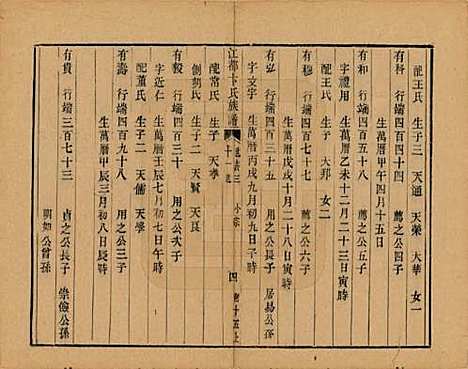 配王氏 生子三 天通 天榮 大華 女一
有科 行端四百四十四 薦之公四子
生萬曆甲午四月十五日
有和 行端四百五十八 薦之公五子
字禮用 生萬曆乙未十二月二十三日寅時
配王氏 生子一 大邦 女二
有穆 行端四百七十七 薦之公六子
生萬曆戊戌十月二十八日寅時
有弘 行端四百三十五 用之公長子 居易公孫
字文宇 生萬曆丙戌九月初九日子時
配常氏 生子一 天孝
江都卞氏族譜 十一 小宗 四 十五上
側胡氏 生子二 天賢 天良
有毅 行端四百三十 用之公次子
字近仁 生萬曆壬辰七月初七日午時
配董氏 生子二 天儒 天學
有壽 行端四百九十八 用之公三子
生萬曆甲辰三月初八日辰時
有貴 行端三百七十三 貞之公長子 崇儉公孫
明如公曾孫